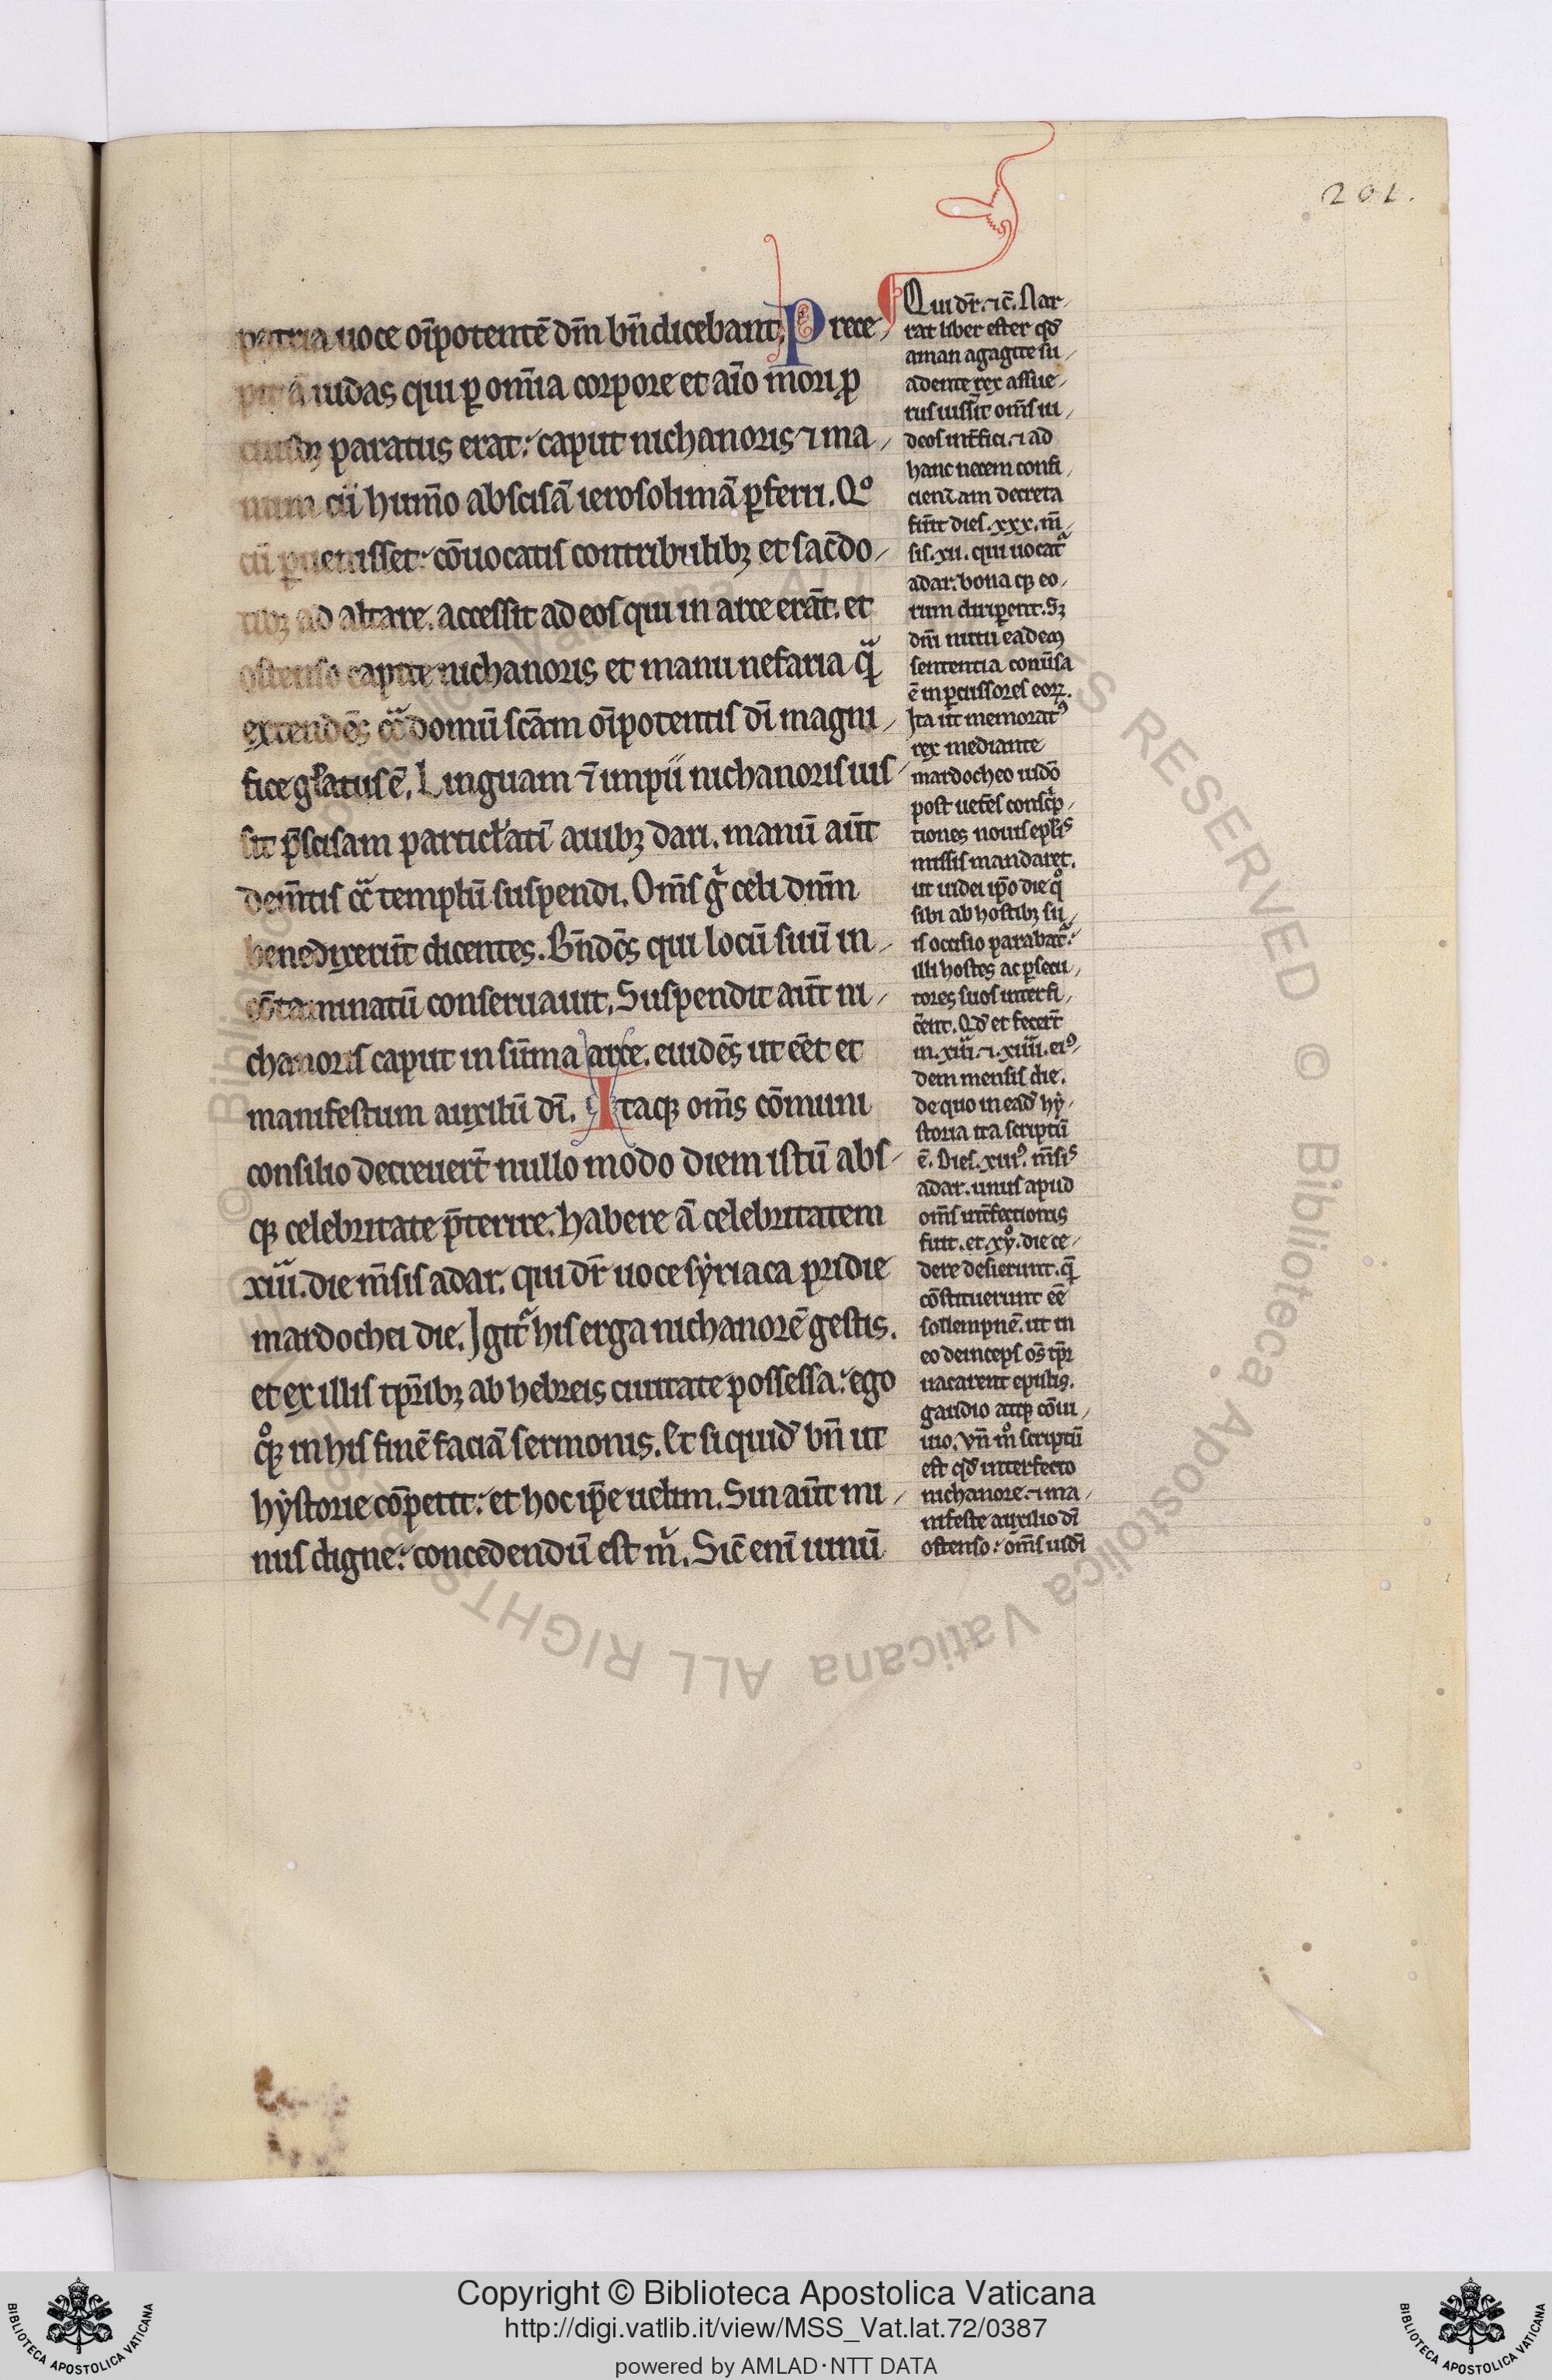 201.
patria uoce oīpotentē dm̄ bn̄dicebant. Prece
pit ā iudas qui ꝑ omīa corpore et aīo mori ꝓ
ciuibꝫ paratus erat: caput nichanoris ⁊ ma
num cū humō abscisā ierosolimā ꝑferri. Qͦ
cū ꝑuenisset: cōuocatis contribulibꝫ et sac̄do
tibꝫ ad altare. accessit ad eos qui in arce erāt. et
ostenso capite nichanoris et manu nefaria q̄
extendēs cͣ domū scām oīpotentis dī magni
fice gl̄atus ē. Linguam ⁊̄ impii nichanoris ius
sit p̄scisam particl̄atī auibꝫ dari. manū aūt
dem̄tis cͣ templū suspendi. Om̄s gͥ celi dnm̄
benedixerūt dicentes. Bn̄dc̄s qui locū suū in
cōtaminatū conseruauit. Suspendit aūt ni
chanoris caput in sūma arce. euidēs ut eēt et
manifestum auxiliū dī. Itaqꝫ om̄s cōmuni
consilio decreuert̄ nullo modo diem istū abs
qꝫ celebritate p̄terire. habere ā celebritatem
xiii. die m̄sis adar. qui dr̄ uoce syriaca pridie
mardochei die. Igitͬ his erga nichanorē gestis.
et ex illis tꝑribꝫ ab hebreis ciuitate possessa: ego
qͦꝫ in his finē faciā sermonis. Et siquid bn̄ ut
hystorie cōpetit: et hoc ip̄e uelim. Sin aūt mi
nus digne: concedendū est mͥ. Sic̄ enī uinū
Qui dr̄. ⁊c̄. Nar
rat liber ester qd̄
aman agagite su
adente rex assue
rus iussit om̄s iu
deos int̄fici. ⁊ ad
hanc necem confi
ciendam decreta
fuīt dies. xxx. m̄
sis. xii. qui uocatͬ
adar: bona qꝫ eo
rum diriꝑent. Sꝫ
dm̄i nutu eadem
sententia conūsa
ē in ꝑcussores eoꝝ.
Ita ut memoratꝰ
rex mediante
mardocheo iudō
post uet̄es consc͛p
tiones nouis epl̄is
missis mandaret.
ut iudei ip̄o die qͦ
sibi ab hostibꝫ su
is occisio parabatͬ:
illi hostes ac ꝑsecu
tores suos interfi
c̄ent. Qd̄ et fecert̄
in. xiii. ⁊. xiiii. eiꝰ
dem mensis die.
de quo in ead̄ hy
storia ita scriptū
ē. Dies. xiiiꝰ. m̄sis
adar. unus apud
om̄s int̄fectionis
fuit. et. xvͦ. die ce
dere desierunt. q̄
cōstituerunt eē
sollempnē. ut in
eo deinceps oī tꝑr
uacarent epulis.
gaudio atqꝫ cōui
uio. Vn̄ mͦ scriptū
est qd̄ interfecto
nichanore. ⁊ ma
nifeste auxilio dī
ostenso: om̄s iudī
Copyright © Biblioteca Apostolica Vaticana
http://digi.vatlib.it/view/MSS_Vat.lat.72/0387
powered by AMLAD·NTT DATA
BIBLIOTECA APOSTOLICA VATICANA
BIBLIOTECA APOSTOLICA VATICANA
© Biblioteca Apostolica Vaticana ALL RIGHTS RESERVED © Biblioteca Apostolica Vaticana ALL RIGHTS RESERVED